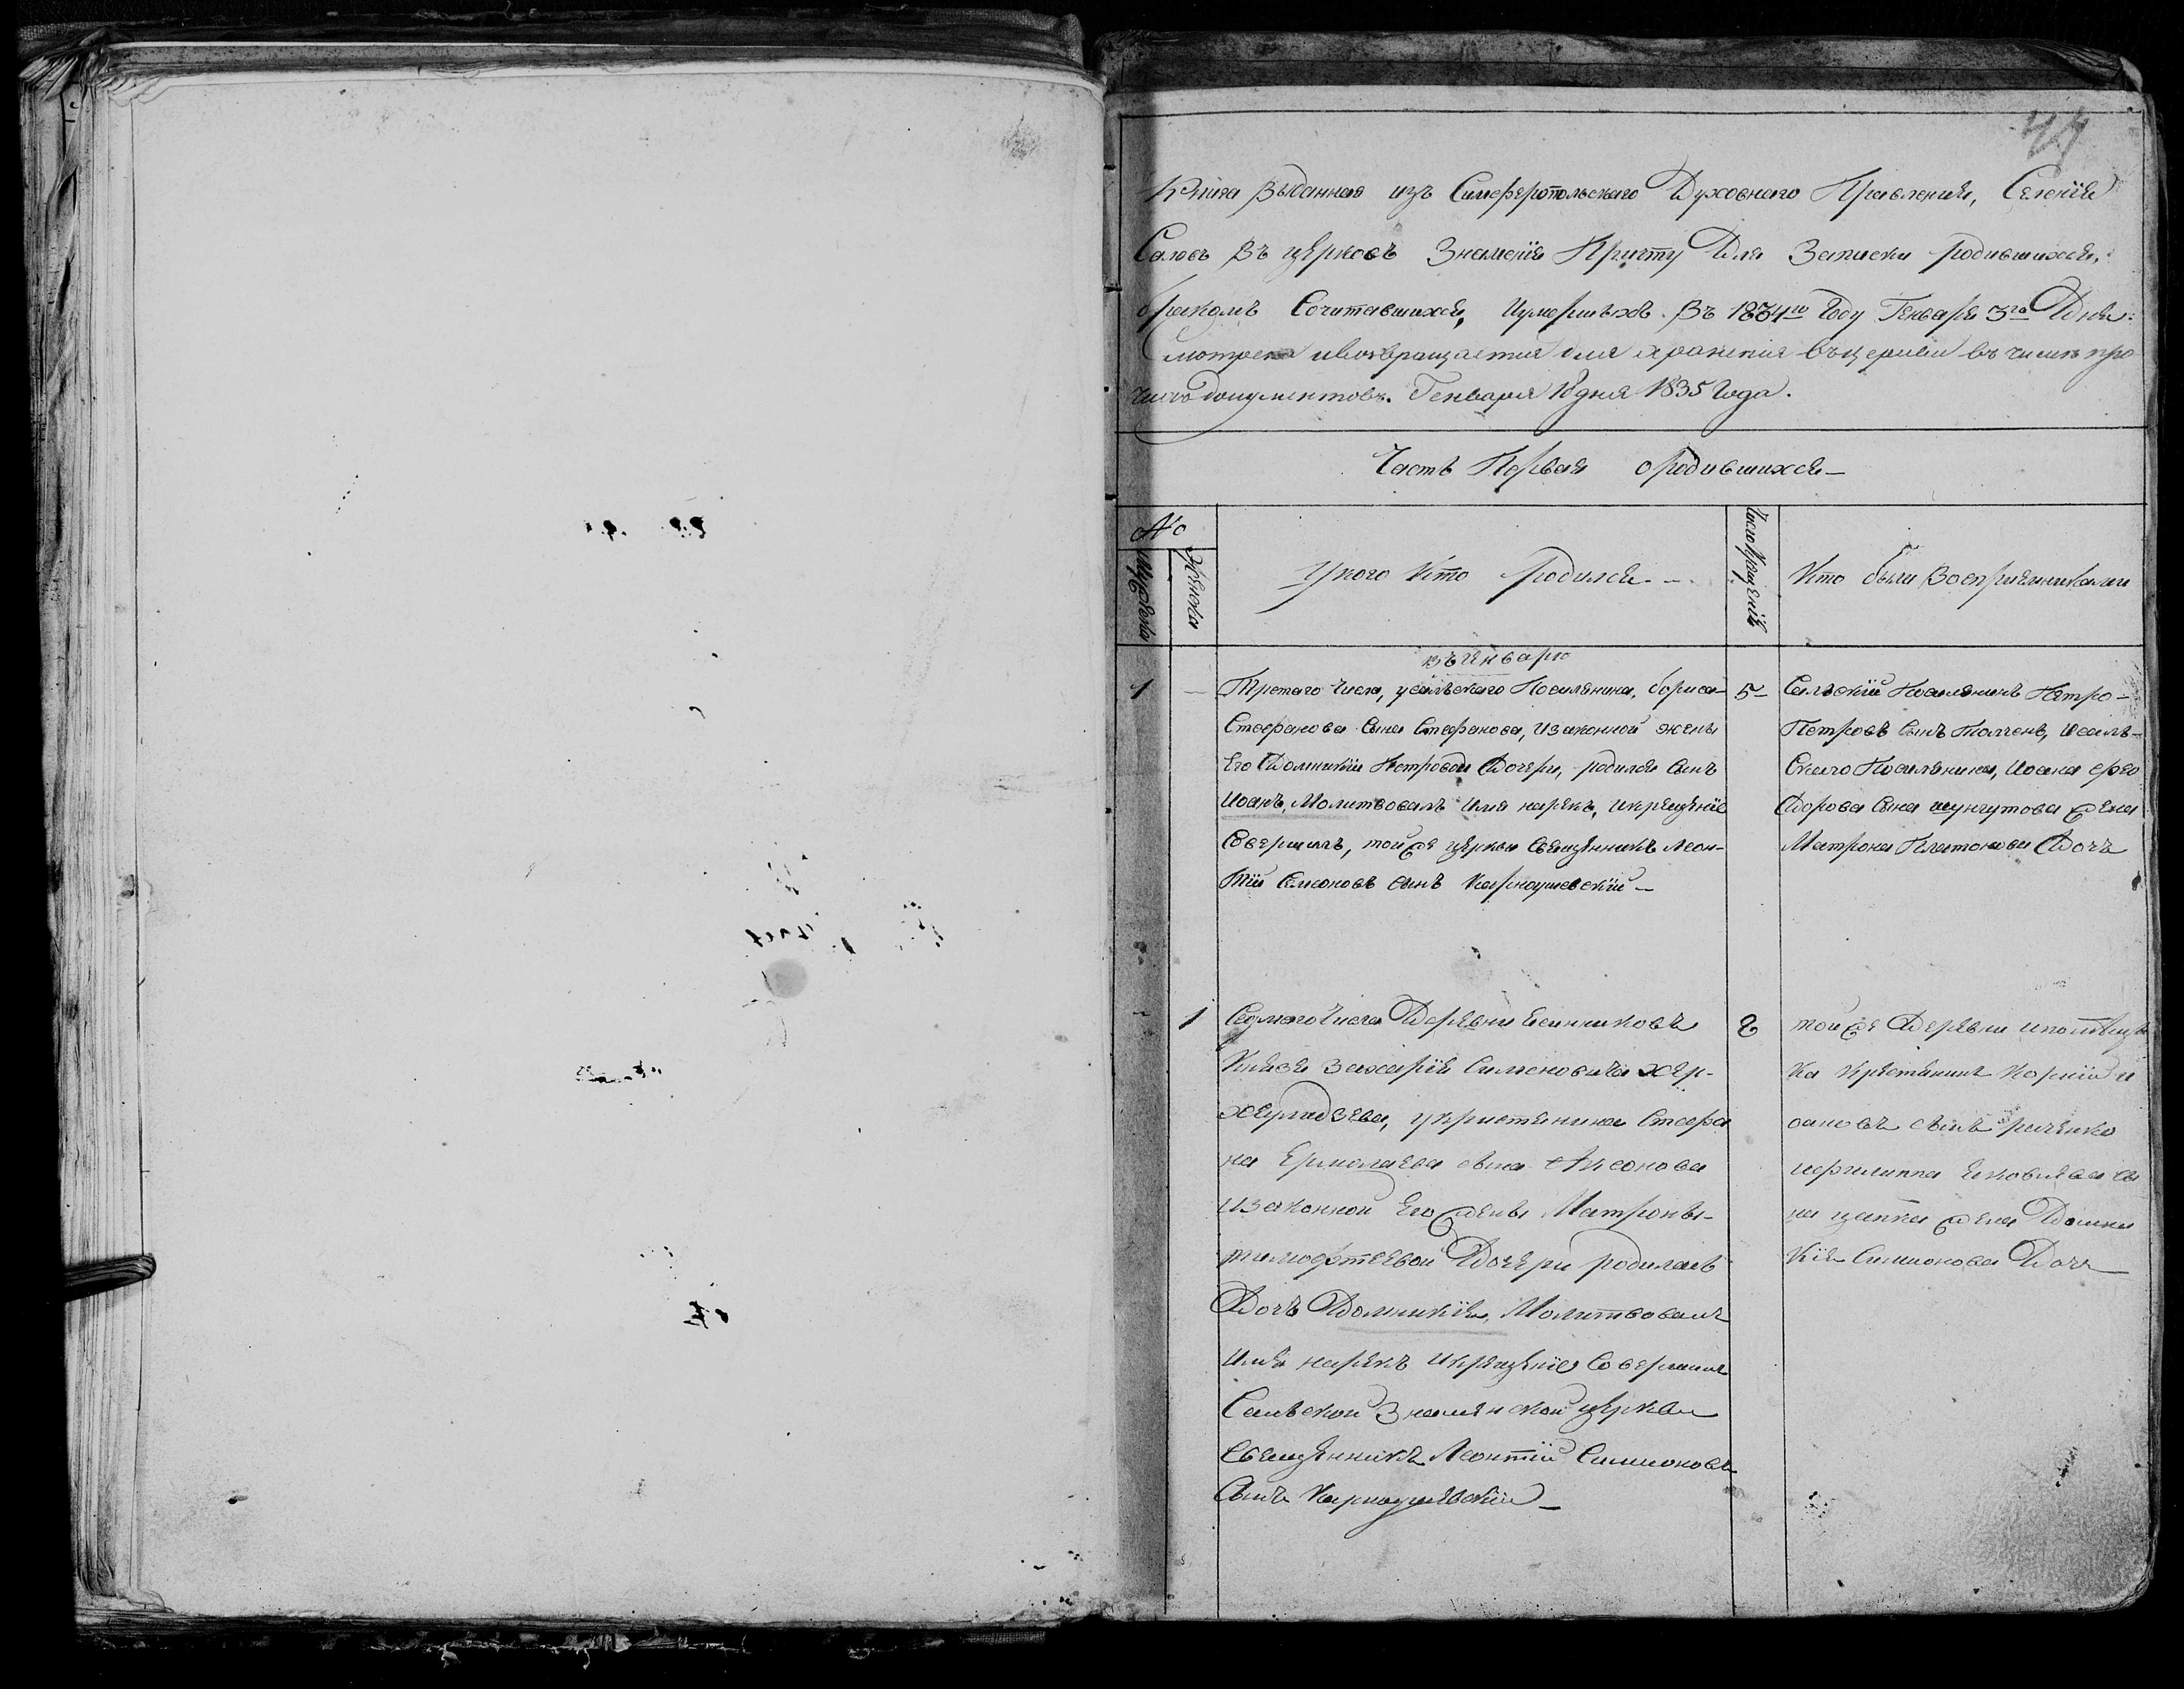 44
Книга Выданная изъ Симферопольскаго Духовнаго Правления, Селенїя
Саловъ Въ церковь Знаменїя Причту Для Записки родившихся,
бракомъ Сочитавшихся, Иумершихъ. Въ 1834го Году Генваря 3го Дня.
Смотрена ивозвращается для хранения въцеркви въ числе про
чихъ документовъ. Генваря 18 дня 1835 Года.
Часть Первая ородившихся—
№
Мужеска
Женска
Укого Кто родился.—
Число Крещенїя
Кто были Восприемниками
въ Январѣ
1
Третаго Числа, усалъскаго Поселянина, бориса
Стефанова Сына Стефанова, Изаконной жены
Его Домникїи Петровой Дочери, родился Сынъ
Иоанъ, Молитвовалъ Имя нарекъ, Икрещенїе
Совершилъ, тойже церкви Священникъ Леон-
тїй Симоновъ сынъ Карнаушевскїй —
5—
Салъскїй Поселянинъ Петро—
Петровъ Сынъ Толченъ, Исалъ-
Скаго Поселянина, Иоана фео
Дорова Сына шунгутова жена
Матрона Платонова Дочь
1
Седмаго Числа Деревни Есинниковъ
Князя Захарїя Симеоновича Хер-
хеулидзева, укристянина Стефа
на Ермолаева сына Аксонова
изаконной Его жены Матроны
тимофтеевой Дочери родилась
Дочь Домникїя, Молитвовалъ
Имя нарекъ Икрещенїе Совершилъ
Салъской Знаменской церкви
Священникъ Леонтїй Симионовъ
Сынъ Карнаушевскїй —
8
тойже Деревни ипомѣщи
ка Крестянинъ Корнїй и
оановъ сынъ раченко
ифилипа Яковлева сы
на цапка жена Домни
Кїя Симионова Дочь